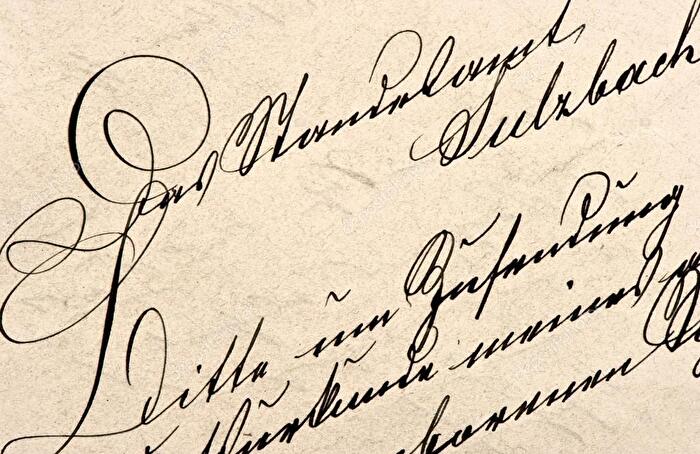 Das Standesamt
Sulzbach
Bitte um Zusendung
Urkunde meines
borenen